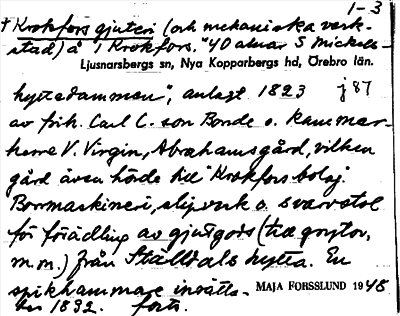 1-3
† Krokfors gjuteri (och mekaniska verk-
stad) å 1 Krokfors. "40 alnar S Mickels-
Ljusnarsbergs sn, Nya Kopparbergs hd, Örebro län.
hyttedammen", anlagt 1823 j87
av frih. Carl C. son Bonde o. kammar-
herre V. Virgin, Abrahamsgård, vilken
gård även hörde till Krokfors bolag.
Borrmaskineri, slipverk o. svarvstol
för förädling av gjutgods (t.ex. grytor,
m.m.) från Ställdals hytta. En
spikhammare insätts- MAJA FORSSLUND 1948
tes 1832. forts.